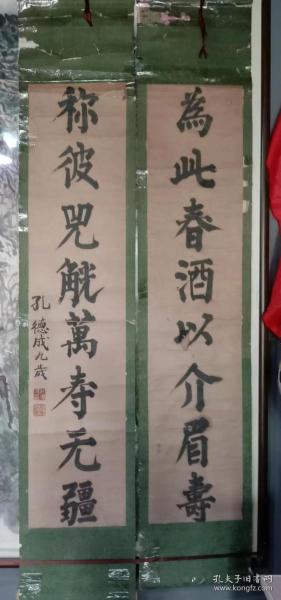 為此春酒以介眉壽
称彼兕觥萬寿无疆
孔德成九歲
孔夫子旧书网
www.kongfz.com